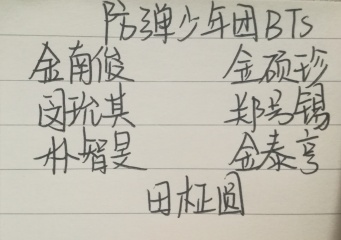 防弹少年团BTs
金南俊 金硕珍
闵玧其 郑号锡
朴智旻 金泰亨
田柾圆